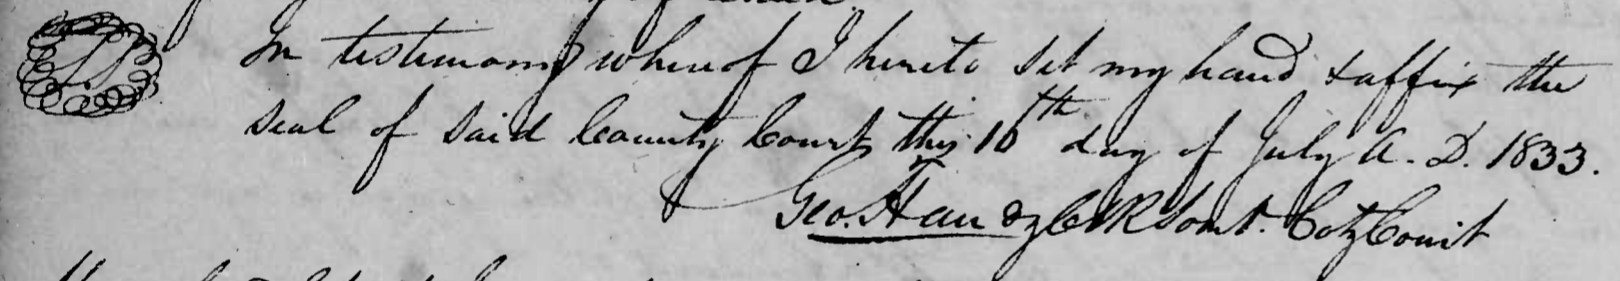 In testimony whereof I hereto set my hand & affix the
seal of said County Court this 10th day of July A. D. 1833.
Geo. Handy Clk Somt. Coty Court